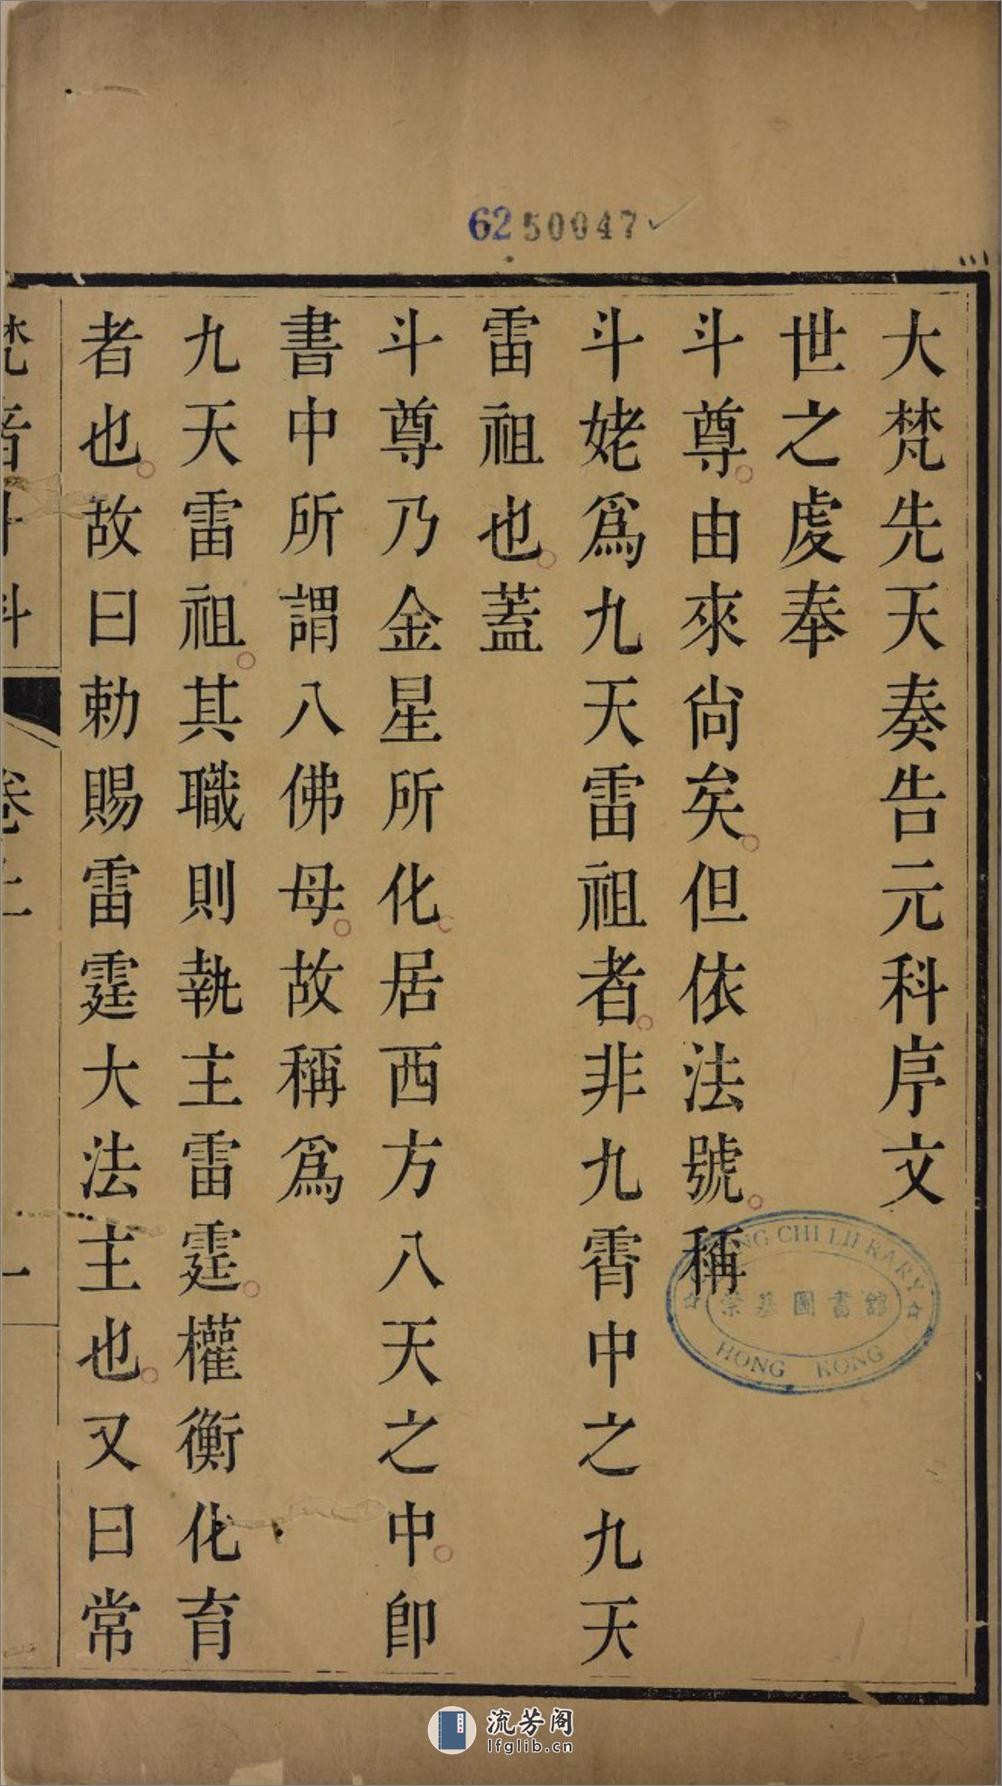 6250047
大梵先天奏告元科序文
世之虔奉
斗尊。由來尙矣。但依法號。稱
斗姥爲九天雷祖者。非九霄中之九天
雷祖也。蓋
斗尊乃金星所化。居西方八天之中。卽
書中所謂八佛母。故稱爲
九天雷祖。其職則執主雷霆。權衡化育
者也。故曰勅賜雷霆大法主也。又曰常
梵音斗科
卷上
一
CHI LIBRARY
崇基圖書館
HONG KONG
流芳阁
lfglib.cn